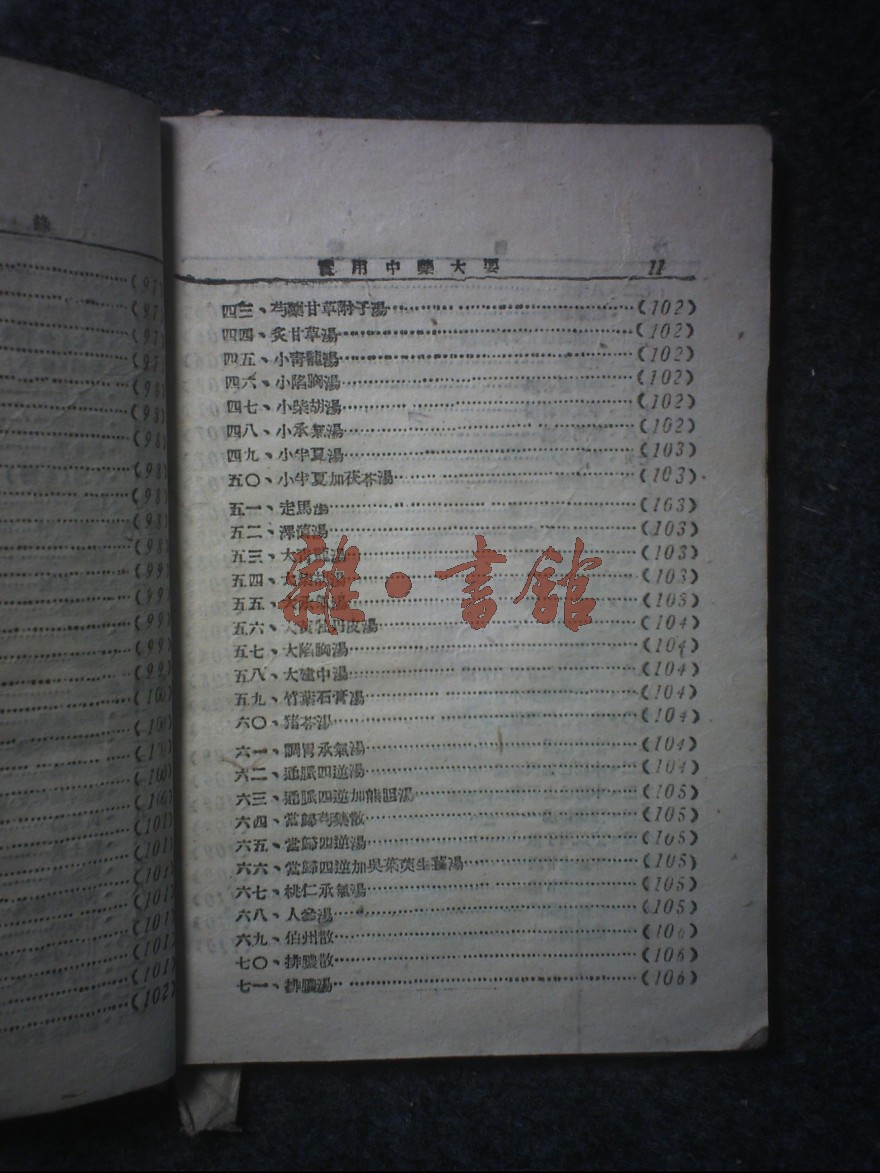 錄
(97)
(97)
(97)
(97)
(98)
(98)
(98)
(98)
(98)
(98)
(98)
(99)
(99)
(99)
(99)
(99)
(100)
(100)
(100)
(100)
(101)
(101)
(101)
(101)
(101)
(101)
(101)
(102)
實用中藥大要 11
四三、芍藥甘草附子湯……(102)
四四、炙甘草湯……(102)
四五、小靑龍湯……(102)
四六、小陷胸湯……(102)
四七、小柴胡湯……(102)
四八、小承氣湯……(102)
四九、小半夏湯……(103)
五〇、小半夏加茯苓湯……(103)
五一、走馬湯……(103)
五二、澤瀉湯……(103)
五三、大靑龍湯……(103)
五四、大柴胡湯……(103)
五五、大承氣湯……(103)
五六、大黃牡丹皮湯……(104)
五七、大陷胸湯……(104)
五八、大建中湯……(104)
五九、竹葉石膏湯……(104)
六〇、猪苓湯……(104)
六一、調胃承氣湯……(104)
六二、通脈四逆湯……(104)
六三、通脈四逆加熊胆湯……(105)
六四、當歸芍藥散……(105)
六五、當歸四逆湯……(105)
六六、當歸四逆加吳茱萸生薑湯……(105)
六七、桃仁承氣湯……(105)
六八、人參湯……(105)
六九、伯州散……(106)
七〇、排膿散……(106)
七一、排膿湯……(106)
雜·書館